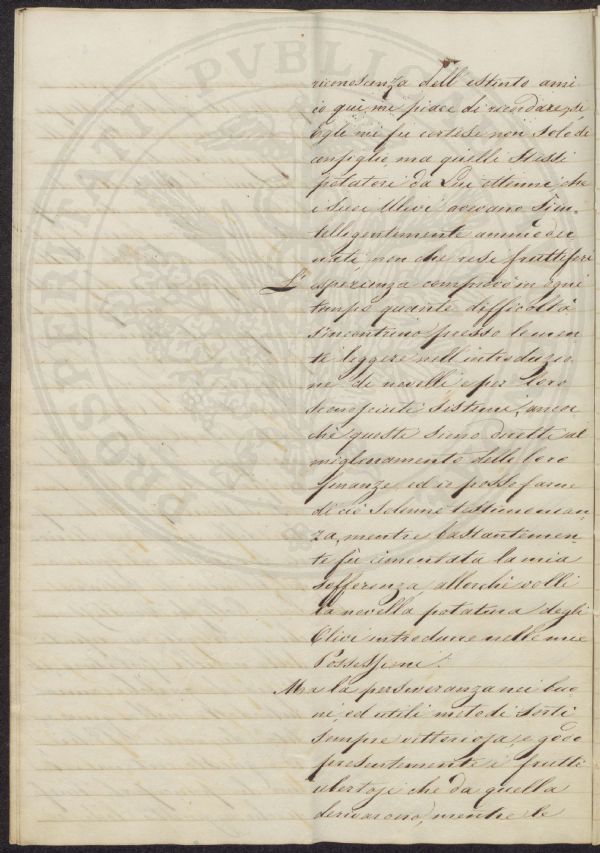 riconoscenza dell'estinto ami-
co qui mi piace di ricordare, se
Egli mi fu cortese non solo di
consiglio, ma quelli stessi
potatori da Lui ottenni, che
i suoi Ulivi avevano sì in-
telligentemente
non che resi fruttiferi
L'esperienza comprovò in ogni
tempo quante difficoltà
s'incontrino presso le men-
ti leggere nell'introduzio-
ne di novelli e per loro
sconosciuti sistemi, ancor
chè questi sieno diretti al
miglioramento delle loro
finanze, ed io posso farne
di ciò solenne testimonian-
za, mentre bastantemen-
te fù cimentata la mia
sofferenza allorchè volli
la novella potatura degli
Olivi introdurre nelle mie
Possessioni.
Ma la perseveranza nei buo-
ni, ed utili metodi sortì
sempre vittoriosa, e godo
presentemente i frutti
ubertosi che da quella
derivarono, mentre le
PROSPERITATI PVBLICAE